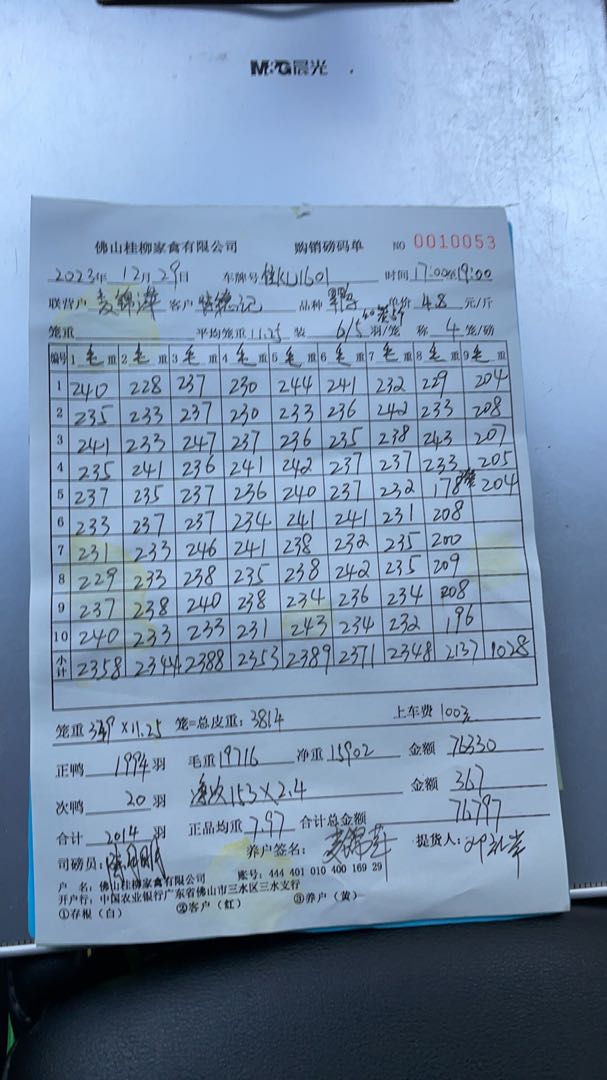 M&G晨光
佛山桂柳家禽有限公司 购销磅码单 NO 0010053
2023年 12月 29日 车牌号 桂KU1601 时间 17:00至19:00
联营户 客户 品种 单价 4.8 元/斤
笼重 平均笼重 11.25 装 6/5 羽/笼 称 4 笼/磅
编号 1 毛重 2 毛重 3 毛重 4 毛重 5 毛重 6 毛重 7 毛重 8 毛重 9 毛重
1 240 228 237 230 244 241 232 229 204
2 235 233 237 230 233 236 242 233 208
3 241 233 247 237 236 235 238 243 207
4 235 241 236 241 242 237 237 233 205
5 237 235 237 236 240 237 232 178 204
6 233 237 237 234 241 241 231 208
7 231 233 246 241 238 232 235 200
8 229 233 238 235 238 242 235 209
9 237 238 240 238 234 236 234 208
10 240 233 233 231 243 234 232 196
小计 2358 2344 2388 2353 2389 2371 2348 2137 1028
笼重 339×11.25 笼=总皮重: 3814 上车费 100元
正鸭 1994 羽 毛重 19716 净重 15902 金额 76330
次鸭 20 羽 净次153×2.4 金额 367
合计 2014 羽 正品均重 7.97 合计总金额 76797
司磅员: 养户签名: 提货人:
户 名: 佛山桂柳家禽有限公司 账号: 444 401 010 400 169 29
开户行: 中国农业银行广东省佛山市三水区三水支行
①存根(白) ②客户(红) ③养户(黄)